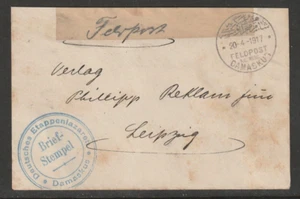 Feldpost
20-4-1917
FELDPOST
DAMASKUS
Verlag
Phillipp Reklam jun
Leipzig
Deutsches Etappenlazarett
Brief-
Stempel
* Damaskus *